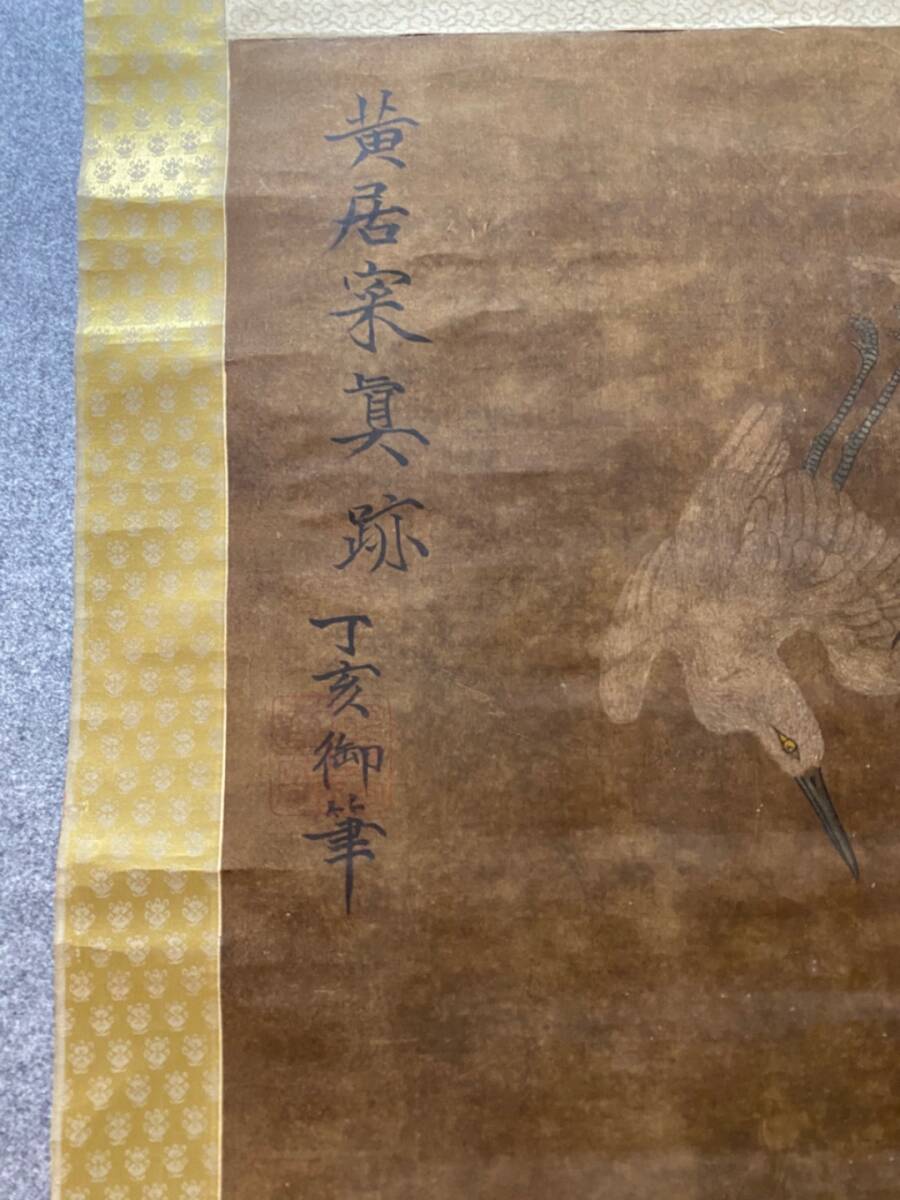 黄居寀真跡
丁亥御筆